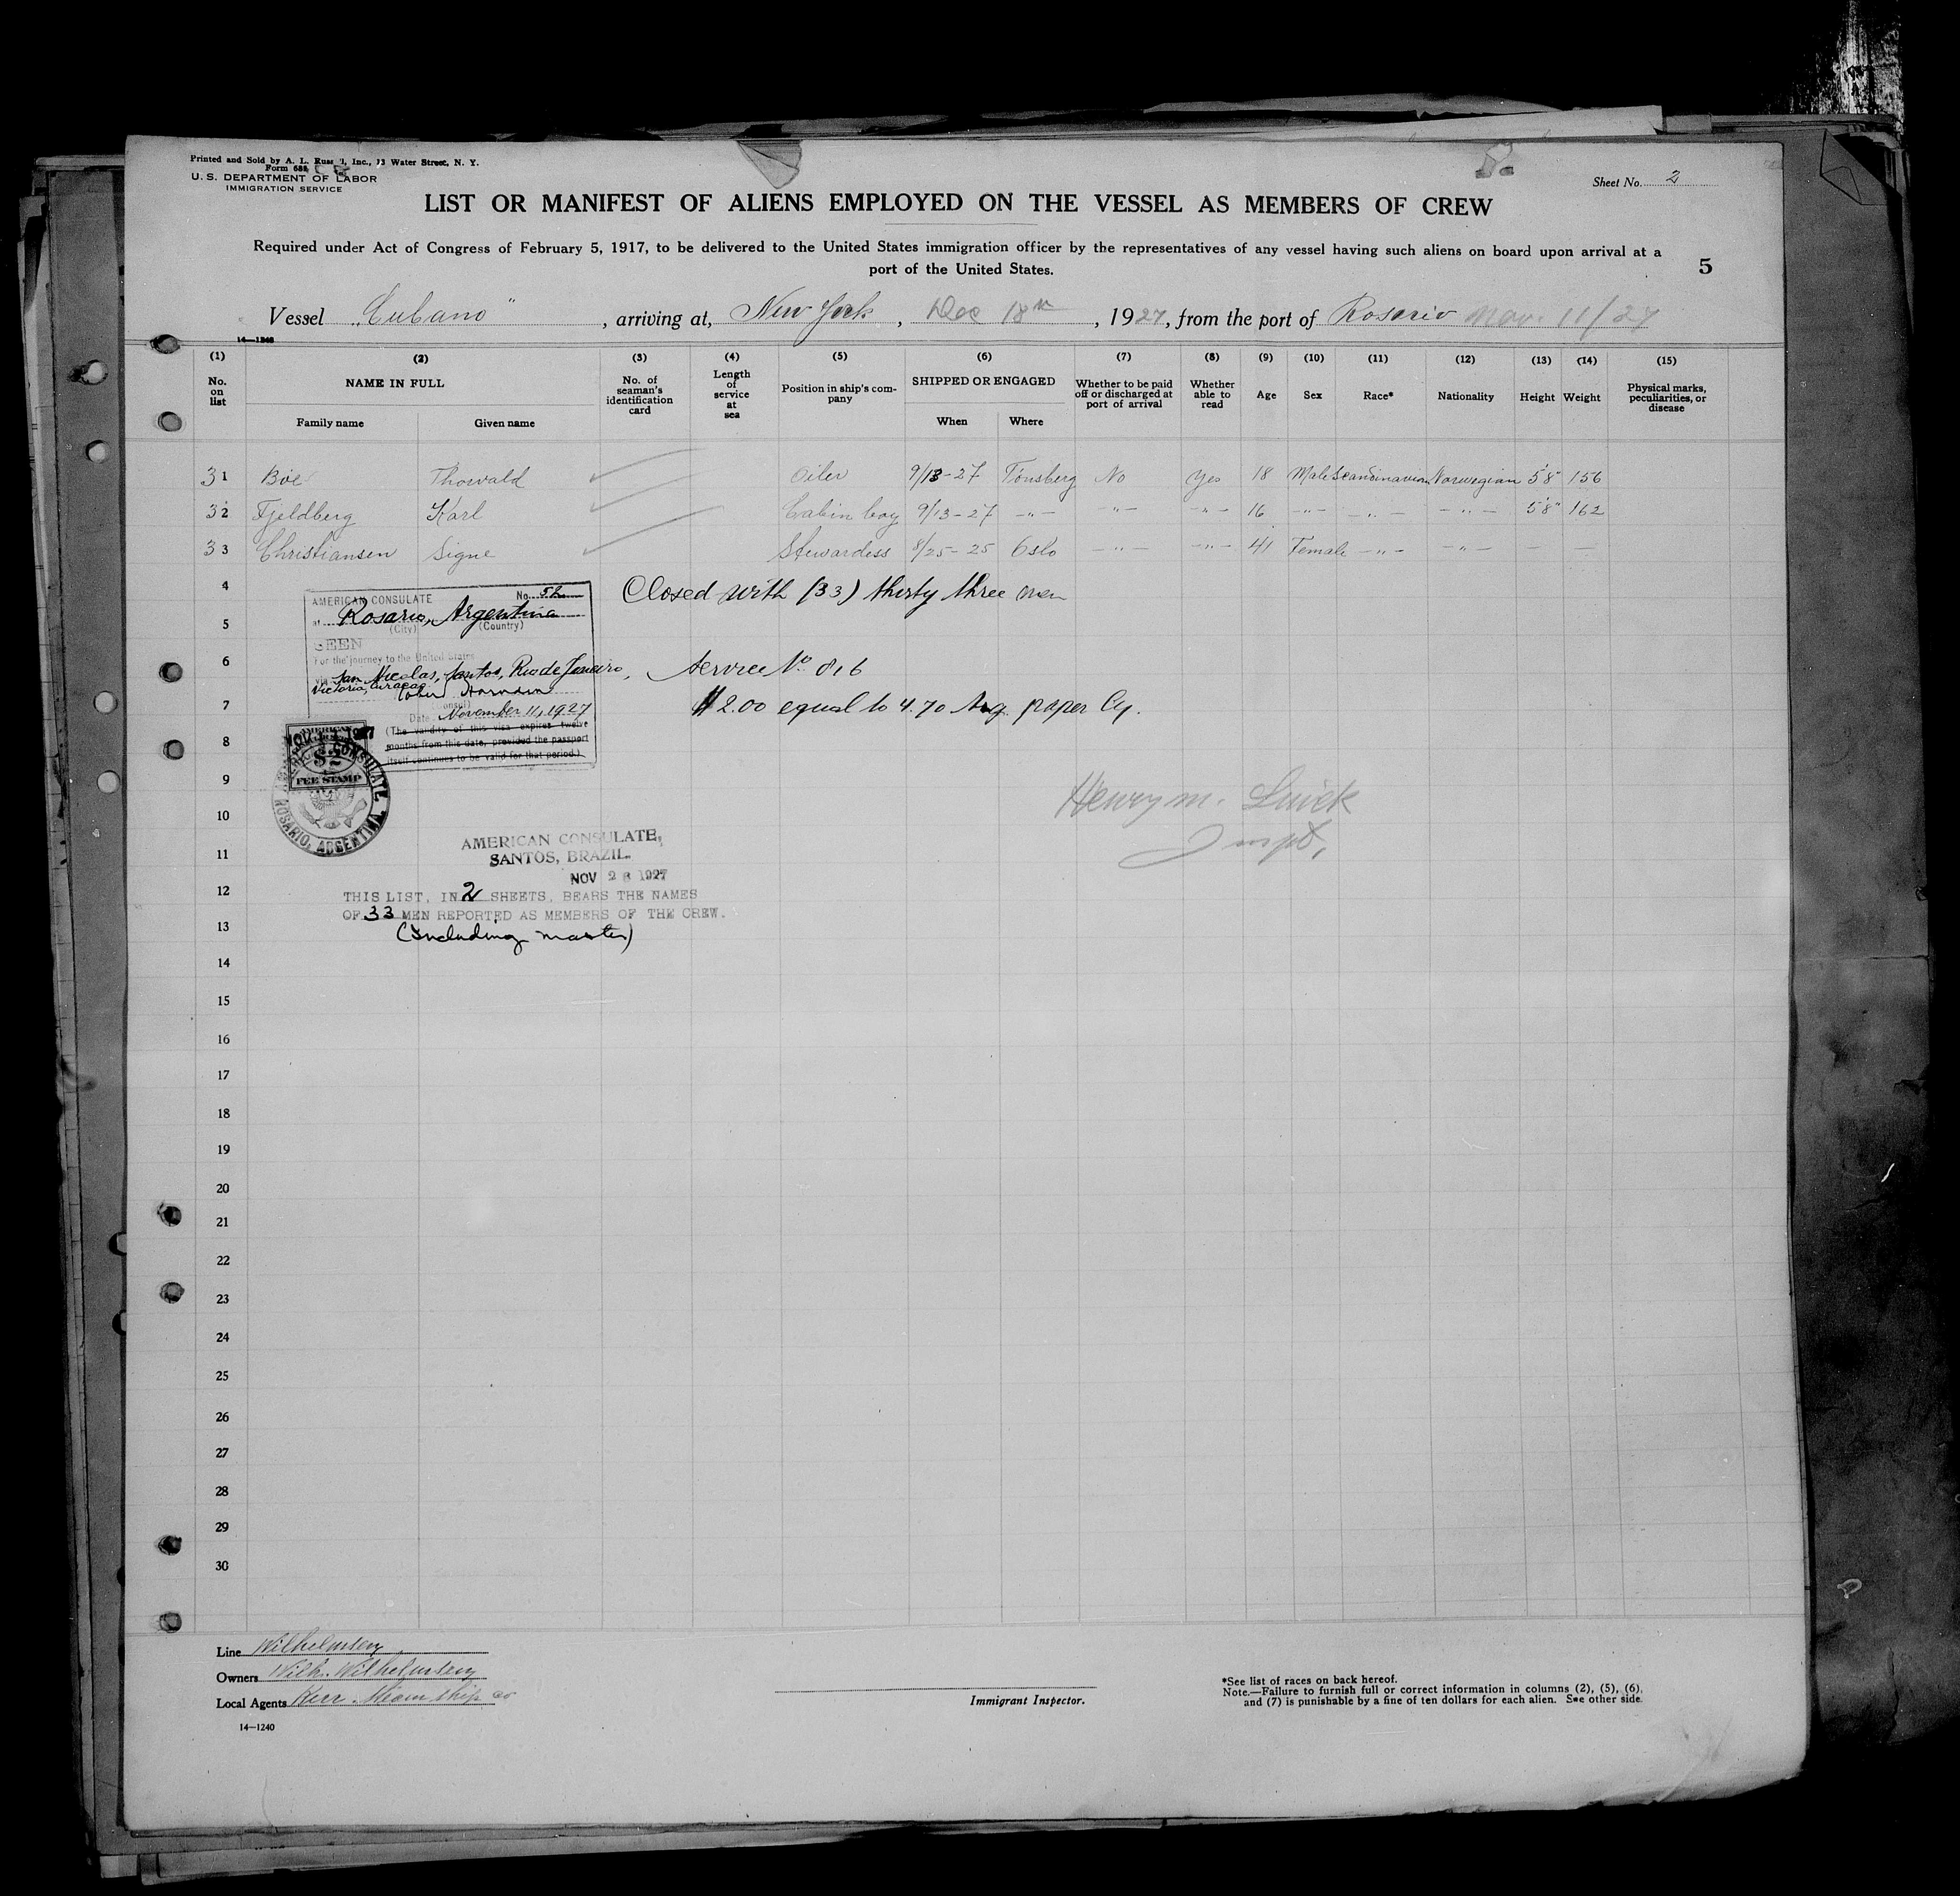 Printed and Sold by A. L. Russ l, Inc., 13 Water Street, N. Y.
Form 688
U. S. DEPARTMENT OF LABOR
IMMIGRATION SERVICE
Sheet No. 2
LIST OR MANIFEST OF ALIENS EMPLOYED ON THE VESSEL AS MEMBERS OF CREW
Required under Act of Congress of February 5, 1917, to be delivered to the United States immigration officer by the representatives of any vessel having such aliens on board upon arrival at a
port of the United States.
5
Vessel "Cubano", arriving at, New York, Dec 18th, 1927, from the port of Rosario Nov. 11/27
(1) (2) (3) (4) (5) (6) (7) (8) (9) (10) (11) (12) (13) (14) (15)
No. on list NAME IN FULL Family name Given name No. of seaman's identification card Length of service at sea Position in ship's company SHIPPED OR ENGAGED When Where Whether to be paid off or discharged at port of arrival Whether able to read Age Sex Race* Nationality Height Weight Physical marks, peculiarities, or disease
31 Böe Thorvald Oiler 9/13-27 Tönsberg No Yes 18 Male Scandinavian Norwegian 5'8" 156
32 Fjeldberg Karl Cabin boy 9/13-27 -"- -"- -"- 16 -"- -"- -"- 5'8" 162
33 Christiansen Signe Stewardess 8/25-25 Oslo -"- -"- 41 Female -"- -"- - -
4
Closed with (33) thirty three men
AMERICAN CONSULATE No.
at Rosario, Argentina
(City) (Country)
5
SEEN
For the journey to the United States
6
via San Nicolas, Santos, Rio de Janeiro,
Victoria, Curaçao
Service No 816
Date November 11, 1927
7
$2.00 equal to 4.70 Arg. paper Cy.
(The validity of this visa expires twelve
months from this date, provided the passport
itself continues to be valid for that period.)
8
AMERICAN
$2
FEE STAMP
AMERICAN CONSULATE
ROSARIO, ARGENTINA
9
Henry M.
10
Inspt.
AMERICAN CONSULATE,
SANTOS, BRAZIL.
11
NOV 28 1927
12
THIS LIST, IN 2 SHEETS, BEARS THE NAMES
OF 33 MEN REPORTED AS MEMBERS OF THE CREW.
13
(Including master)
14
15
16
17
18
19
20
21
22
23
24
25
26
27
28
29
30
Line Wilhelmsen
Owners Wilh. Wilhelmsen
Local Agents Kerr Steamship Co
14—1240
Immigrant Inspector.
*See list of races on back hereof.
Note.—Failure to furnish full or correct information in columns (2), (5), (6),
and (7) is punishable by a fine of ten dollars for each alien. See other side.